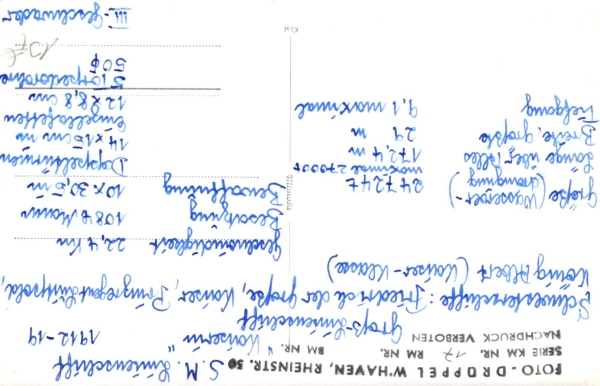 FOTO-DROPPEL W'HAVEN, RHEINSTR. 50
SERIE KM NR. 17 RM NR.     BM NR.
NACHDRUCK VERBOTEN
S. M. Linienschiff
"Kaiserin" 1912-19
Groß-Linienschiff
Schwesterschiffe: Friedrich der große, Kaiser, Prinzregent Luitpold,
König Albert (Kaiser-Klasse)
Größe (Wasserver-
drängung) 24724 t
maximal 27000 t
Länge über Alles 172,4 m
Breite, größte 29 m
Tiefgang 9,1 maximal
Geschwindigkeit 22,4 Km
Besatzung 1084 Mann
Bewaffnung 10 x 30,5 in
Doppeltürmen
14 x 15 cm in
Einzellafetten
12 x 8,8 cm
5 Torpedorohre
50 ¢
III-Geschwader